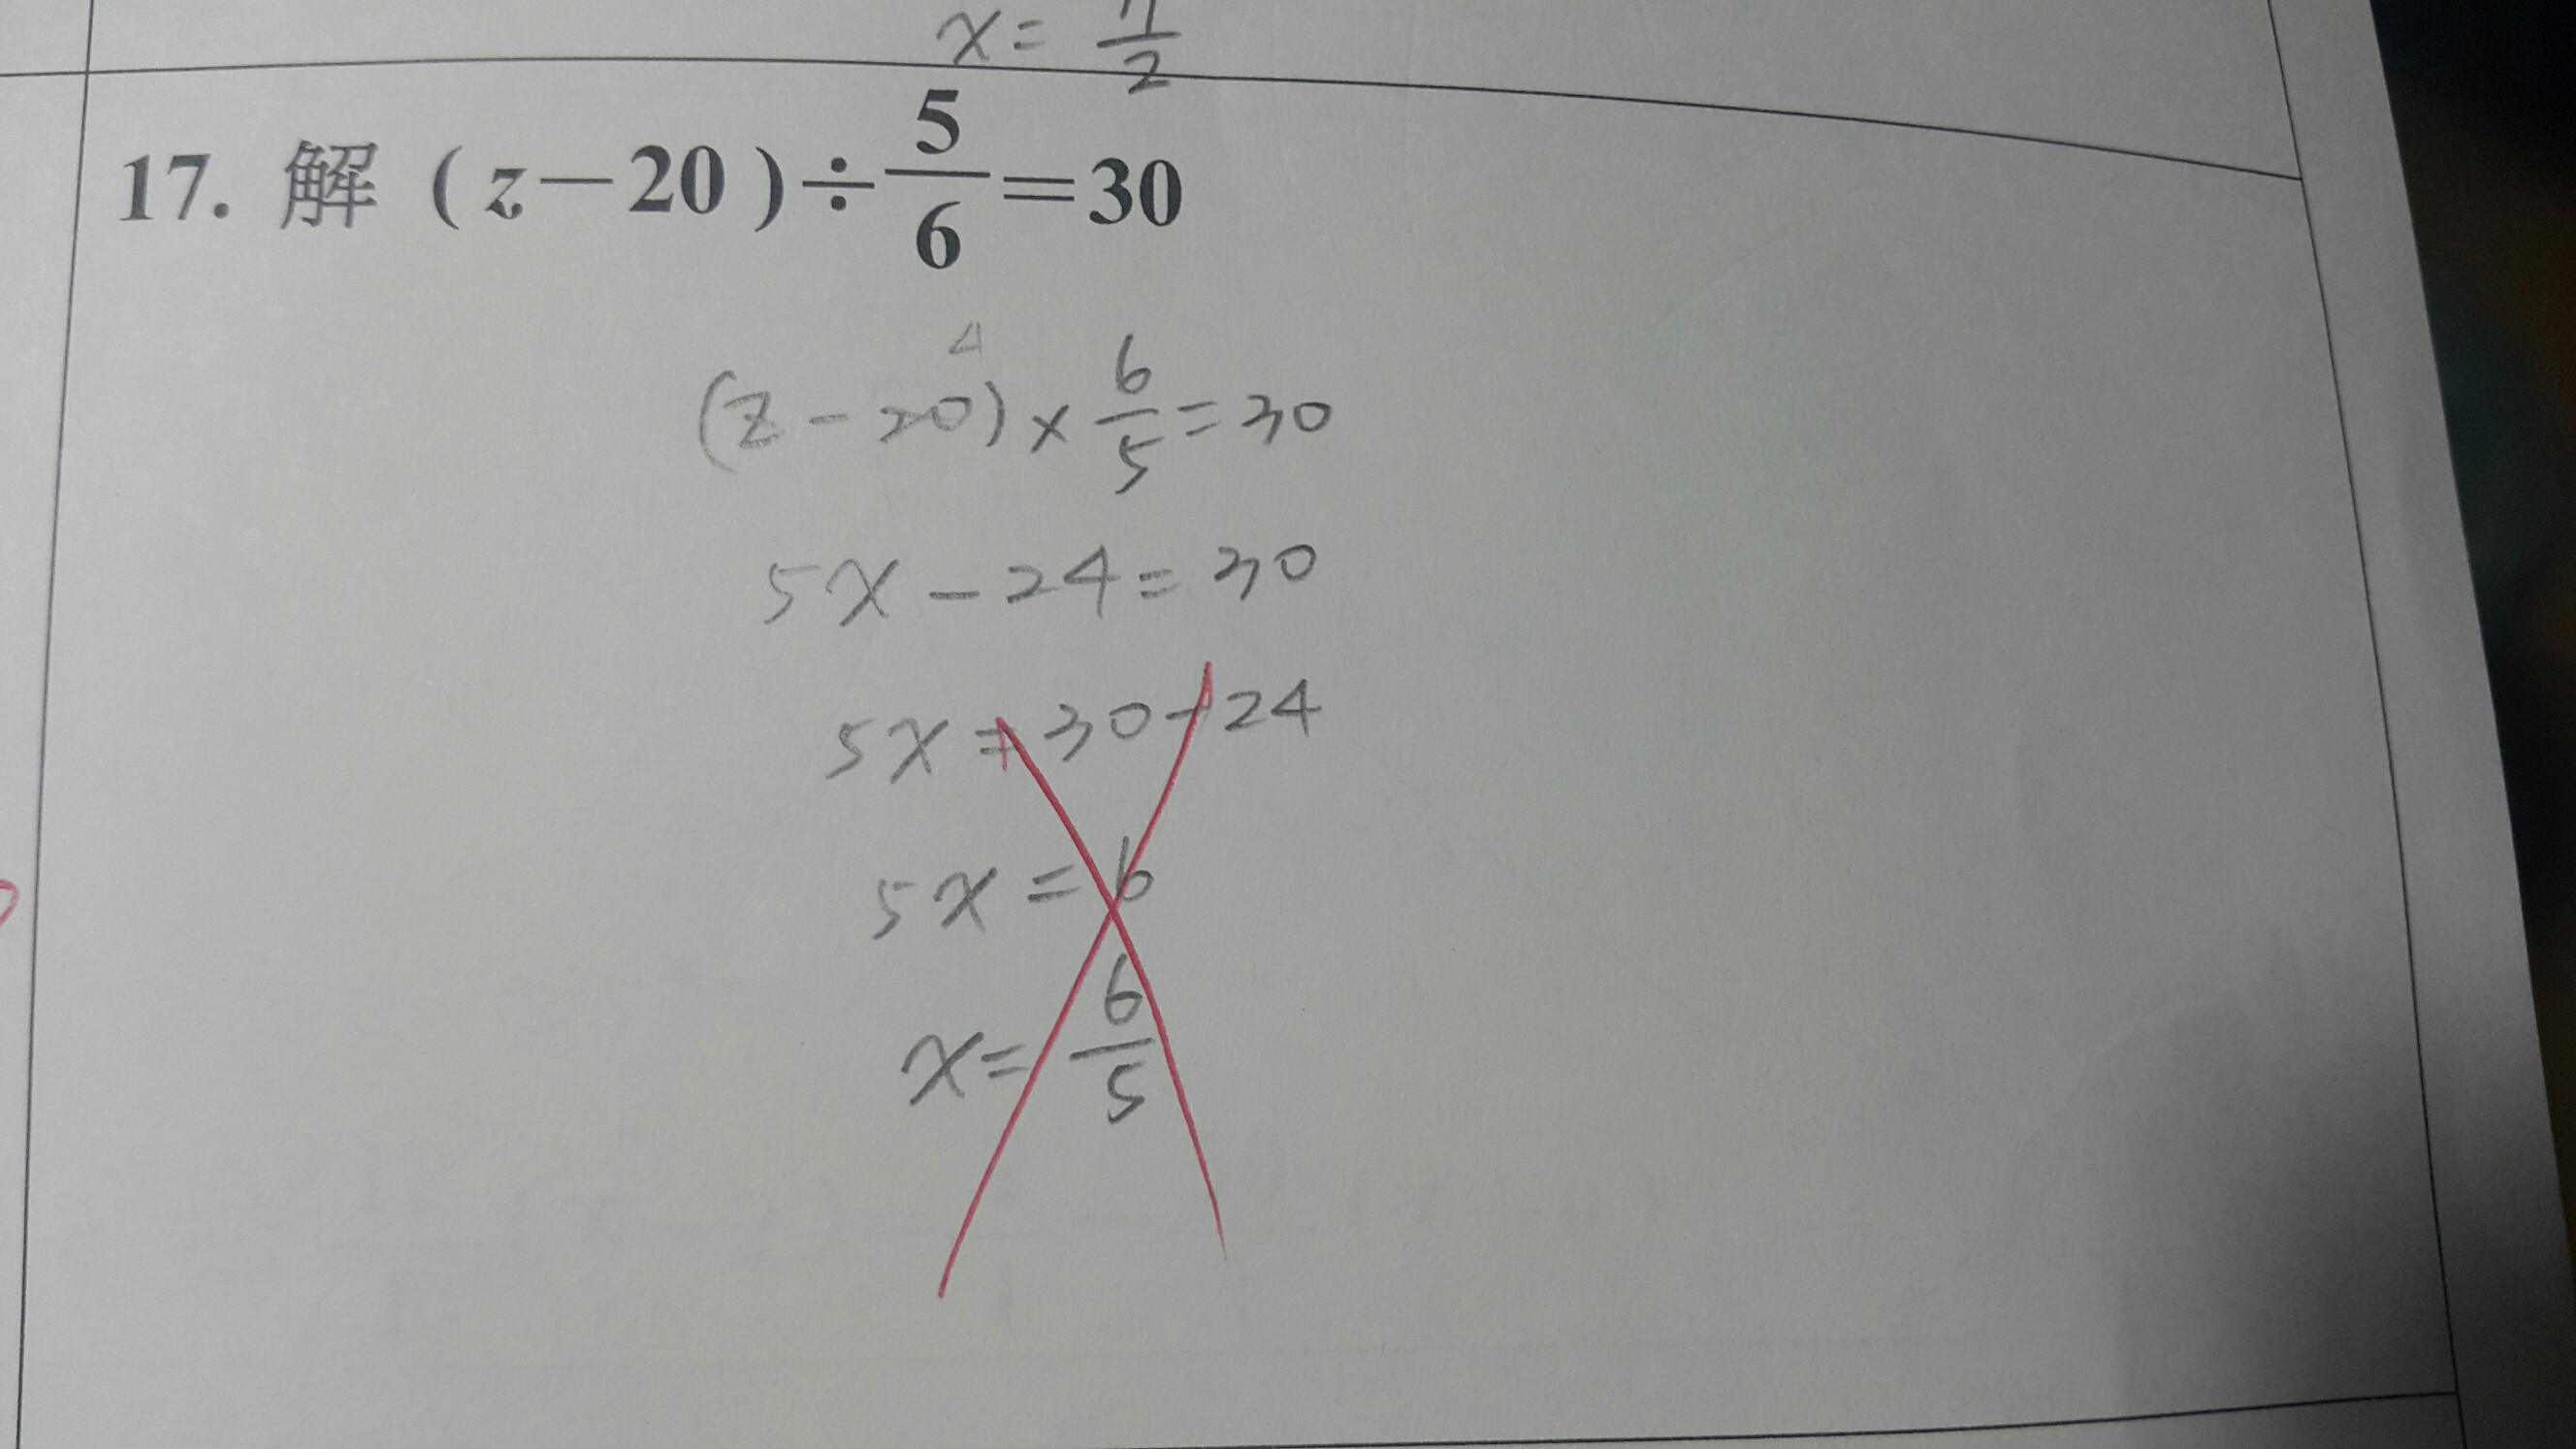 x = 7/2
17. 解 ( z－20 )÷5/6＝30
4
(z - 20) × 6/5 = 30
5x - 24 = 30
5x = 30 - 24
5x = 6
x = 6/5